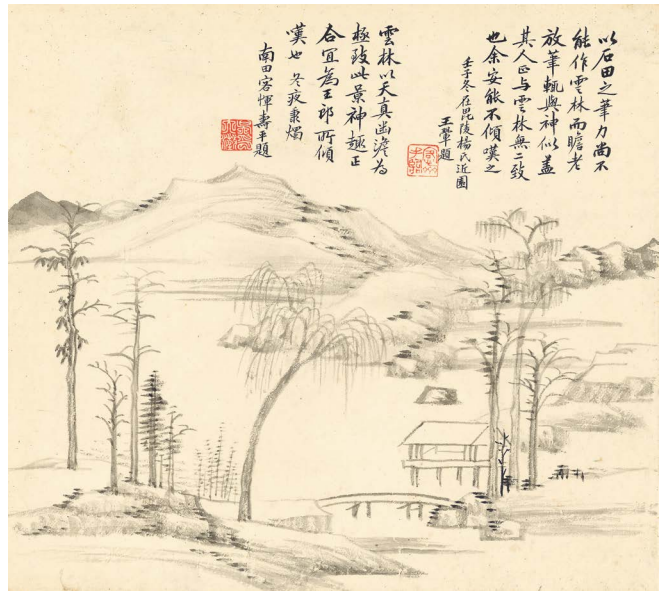 以石田之筆力尚不
能作雲林而瞻老
放筆輒與神似蓋
其人正与雲林無二致
也余安能不傾嘆之
壬子冬在毘陵楊氏近園
王翬題
雲林以天真幽澹為
極致此景神趣正
合宜為王郎所傾
嘆也 冬夜秉燭
南田客惲壽平題